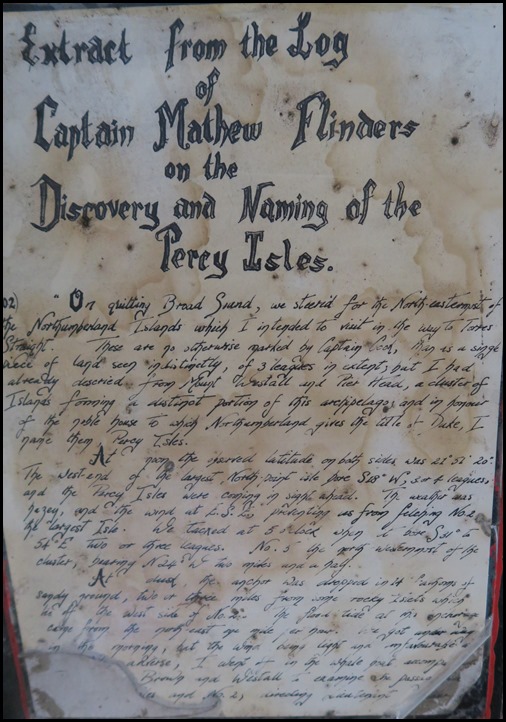 Extract from the Log
of
Captain Mathew Flinders
on the
Discovery and Naming of the
Percy Isles.
02) "On quitting Broad Sound, we steered for the North-easternmost of
the Northumberland Islands which I intended to visit in the way to Torres
Straight. These are no otherwise marked by Captain Cook, than as a single
piece of land seen indistinctly, of 3 leagues in extent, but I had
already descried from Mount Westall and Pier Head, a cluster of
Islands forming a distinct portion of this archipelago; and in honour
of the noble house to which Northumberland gives the title of Duke, I
name them Percy Isles.
At noon the observed latitude on both sides was 21° 51' 20".
The west-end of the largest North point isle bore W, 3 or 4 leagues,
and the Percy Isles were coming in sight ahead. The weather was
hazey, and the wind at preventing us from fetching No.2
the largest Isle. We tacked at 5 o'clock when it bore to
54° E two or three leagues. No. 3 the north westernmost of the
cluster, bearing N 24° W two miles and a half.
At dusk, the anchor was dropped in 14 fathoms of
sandy ground, two or three miles from some rocky islets which
the west side of No.2. The tide at this
came from the north-east
in the morning, but the wind being light and
I went in the whale boat
Brown and Westall to examine the
and No.2,